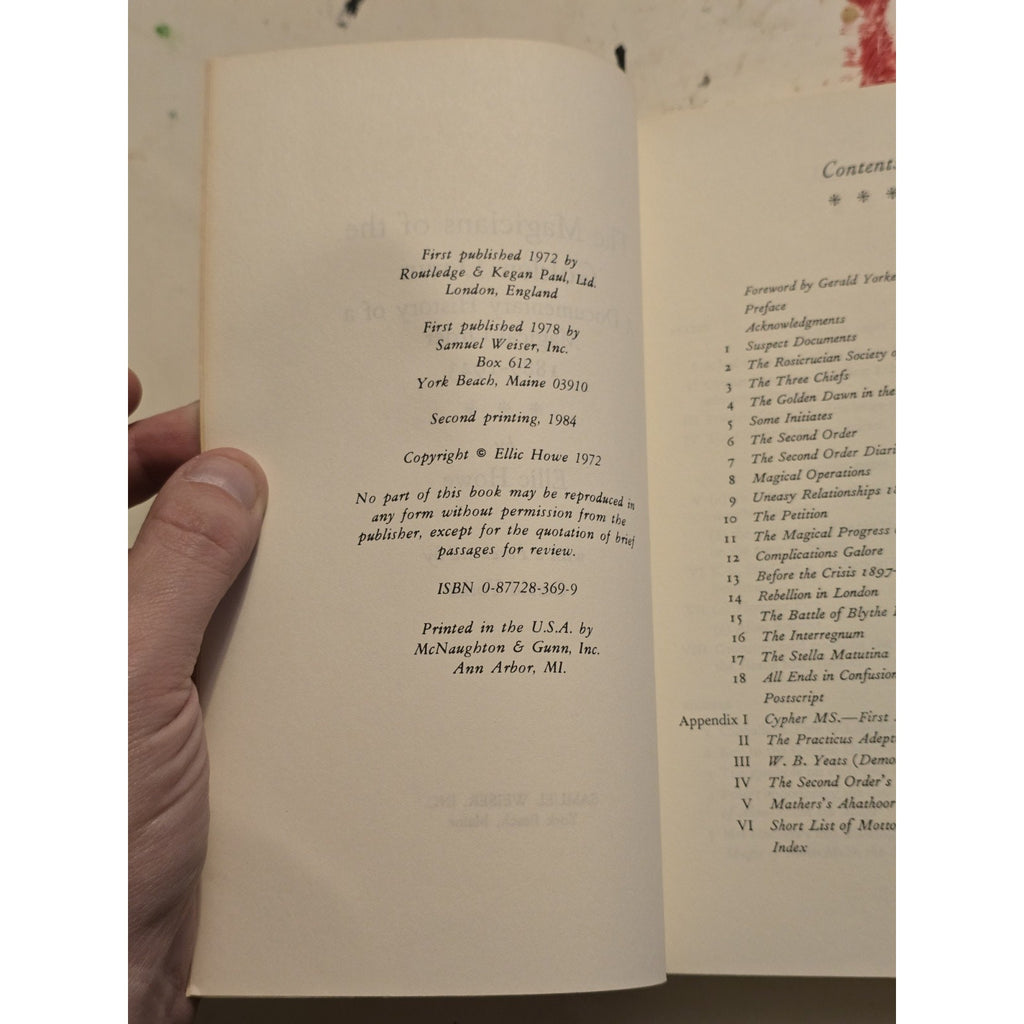 First published 1972 by
Routledge & Kegan Paul, Ltd.
London, England
First published 1978 by
Samuel Weiser, Inc.
Box 612
York Beach, Maine 03910
Second printing, 1984
Copyright © Ellic Howe 1972
No part of this book may be reproduced in
any form without permission from the
publisher, except for the quotation of brief
passages for review.
ISBN 0-87728-369-9
Printed in the U.S.A. by
McNaughton & Gunn, Inc.
Ann Arbor, MI.
Contents
Foreword by Gerald Yorke
Preface
Acknowledgments
1 Suspect Documents
2 The Rosicrucian Society
3 The Three Chiefs
4 The Golden Dawn in the
5 Some Initiates
6 The Second Order
7 The Second Order Diari
8 Magical Operations
9 Uneasy Relationships
10 The Petition
11 The Magical Progress
12 Complications Galore
13 Before the Crisis 1897-
14 Rebellion in London
15 The Battle of Blythe
16 The Interregnum
17 The Stella Matutina
18 All Ends in Confusion
Postscript
Appendix I Cypher MS.—First
II The Practicus Adept
III W. B. Yeats (Demo
IV The Second Order's
V Mathers's Ahathoor
VI Short List of Motto
Index